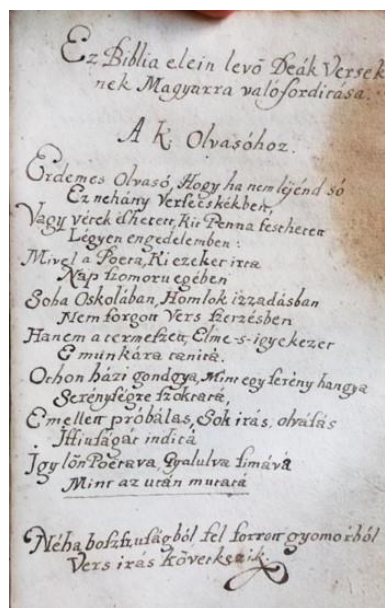 Ez Biblia elein levő Deák Versek
nek Magyarra való fordítása.
A K. Olvasóhoz.
Erdemes Olvasó, Hogy ha nem léjénd só
Ez nehány Versetskékben,
Vagy vétek eshetett, Kit Penna festhetett
Légyen engedelemben:
Mivel a Poëta, Ki ezeket irta
Nap szomoru egében
Soha Oskolában, Homlok izzadásban
Nem forgott Vers szerzésben
Hanem a termeszett, Elme-s-igyekezet
E munkára tanitá.
Othon házi gondgya, Mint egy serény hangya
Serénységre szoktatá,
E mellett próbálás, Sok irás, olvasás
Iffiuságát inditá
Igy lőn Poëtava, Gyalulva simává
Mint az után mutatá
Néha boszszuságból fel forrott gyomorból
Vers irás következik.